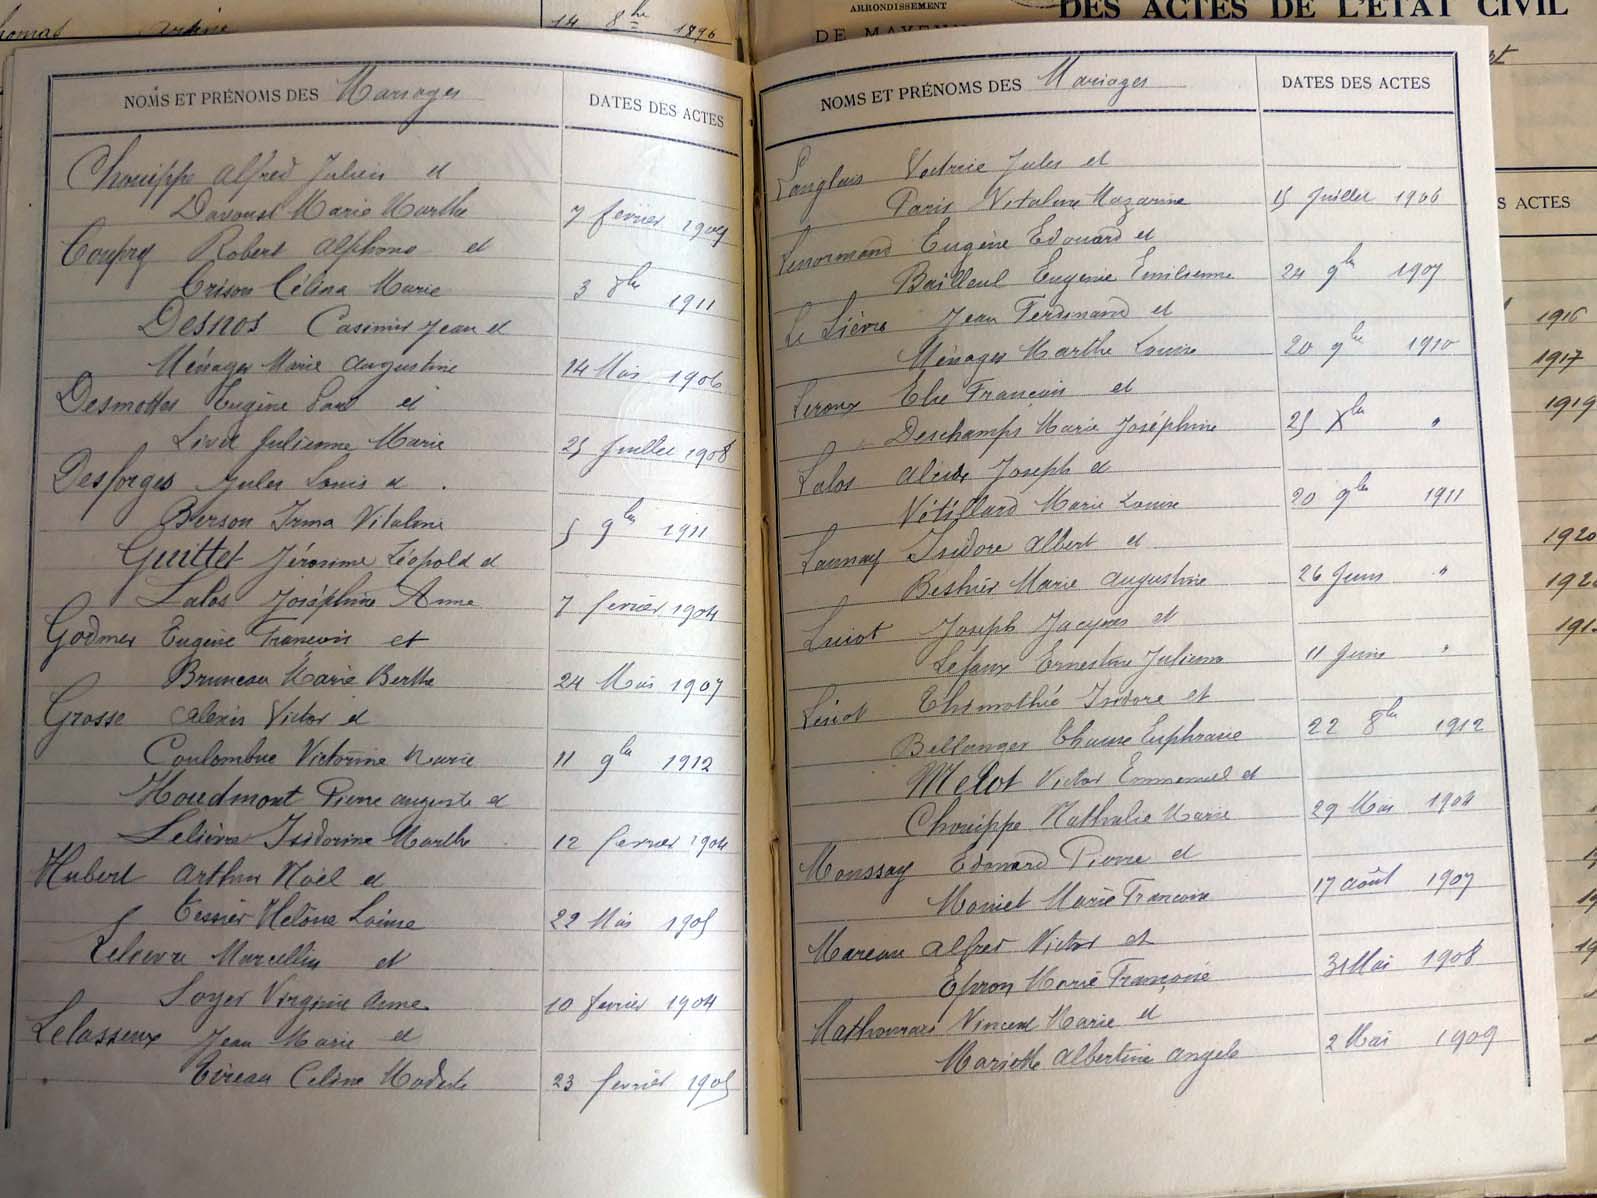 14 8bre 1896
ARRONDISSEMENT
DES ACTES DE L'ÉTAT CIVIL
NOMS ET PRÉNOMS DES Mariages
DATES DES ACTES
Chouippe Alfred Julien et
Davoust Marie Marthe 7 février 1909
Coupry Robert Alphonse et
Crison Célina Marie 3 8bre 1911
Desnos Casimir Jean et
Ménager Marie Augustine 14 Mai 1906
Desmottes Eugène Paul et
Livet Julienne Marie 25 Juillet 1908
Desforges Jules Louis et
Berson Irma Vitaline 5 9bre 1911
Guittet Jérosime Léopold et
Lalos Joséphine Anne 7 février 1904
Godmer Eugène François et
Bruneau Marie Berthe 24 Mai 1907
Grosse Alexis Victor et
Coulombue Victorine Marie 11 9bre 1912
Houdmont Pierre Auguste et
Lelièvre Isidorine Marthe 12 février 1904
Hubert Arthur Noël et
Tessier Helène Louise 22 Mai 1905
Lelievre Marcellin et
Loyer Virginie Anne 10 février 1904
Lelasseux Jean Marie et
Tireau Celine Modeste 23 février 1905
NOMS ET PRÉNOMS DES Mariages
DATES DES ACTES
Langlais Victrice Jules et
Paris Vitaline Nazarine 15 Juillet 1906
Lenormand Eugène Edouard et
Bailleul Eugenie Emilienne 24 9bre 1907
Le Lièvre Jean Ferdinand et
Ménager Marthe Louise 20 9bre 1910
Leroux Elie François et
Deschamps Marie Joséphine 25 Xbre "
Lalos Alcide Joseph et
Vétillard Marie Louise 20 9bre 1911
Launay Isidore Albert et
Besnier Marie Augustine 26 Juin "
Liniot Joseph Jacques et
Lefaux Ernestine Julienne 11 Juin "
Liniot Thimothé Isidore et
Bellanger Euphrasie 22 8bre 1912
Melot Victor Emmanuel et
Chouippe Nathalie Marie 29 Mai 1904
Moussay Edouard Pierre et
Marie Françoise 17 août 1907
Mareau Alfred Victor et
Epron Marie Françoise 31 Mai 1908
Vincent Marie et
Mariette Albertine Angele 2 Mai 1909
S ACTES
1916
1917
1919
1920